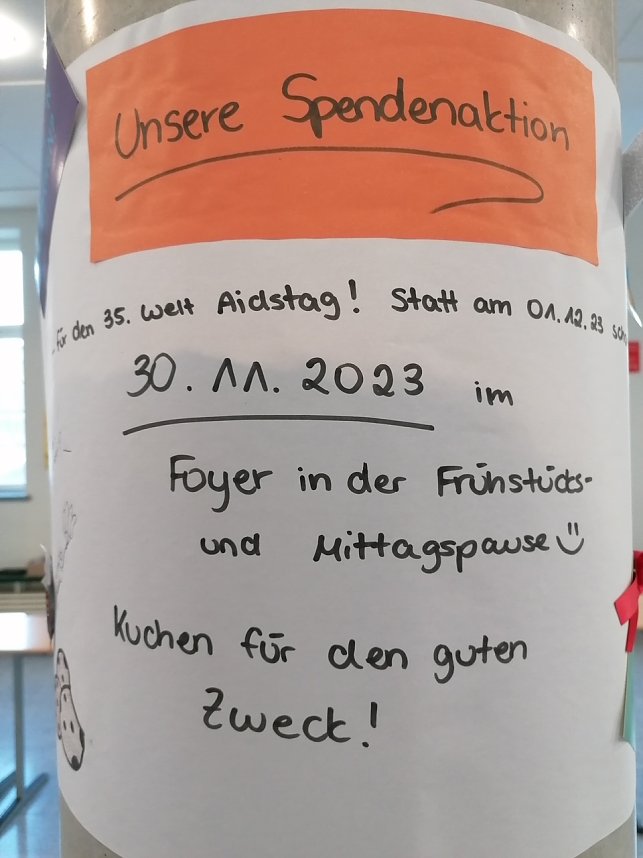 Unsere Spendenaktion
...für den 35. Welt Aidstag! Statt am 01.12.23
30.11.2023 im
Foyer in der Frühstücks-
und Mittagspause
Kuchen für den guten
Zweck!